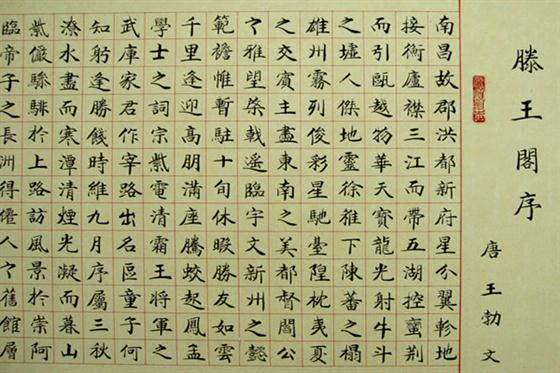 滕王閣序
唐 王勃 文
南昌故郡洪都新府星分翼軫地
接衡廬襟三江而帶五湖控蠻荊
而引甌越物華天寶龍光射牛斗
之墟人傑地靈徐稚下陳蕃之榻
雄州霧列俊彩星馳臺隍枕夷夏
之交賓主盡東南之美都督閻公
之雅望棨戟遙臨宇文新州之懿
範襜惟暫駐十旬休暇勝友如雲
千里逢迎高朋滿座騰蛟起鳳孟
學士之詞宗紫電清霜王將軍之
武庫家君作宰路出名區童子何
知躬逢勝餞時維九月序屬三秋
潦水盡而寒潭清煙光凝而暮山
紫儼驂騑於上路訪風景於崇阿
臨帝子之長洲得僊人之舊館層